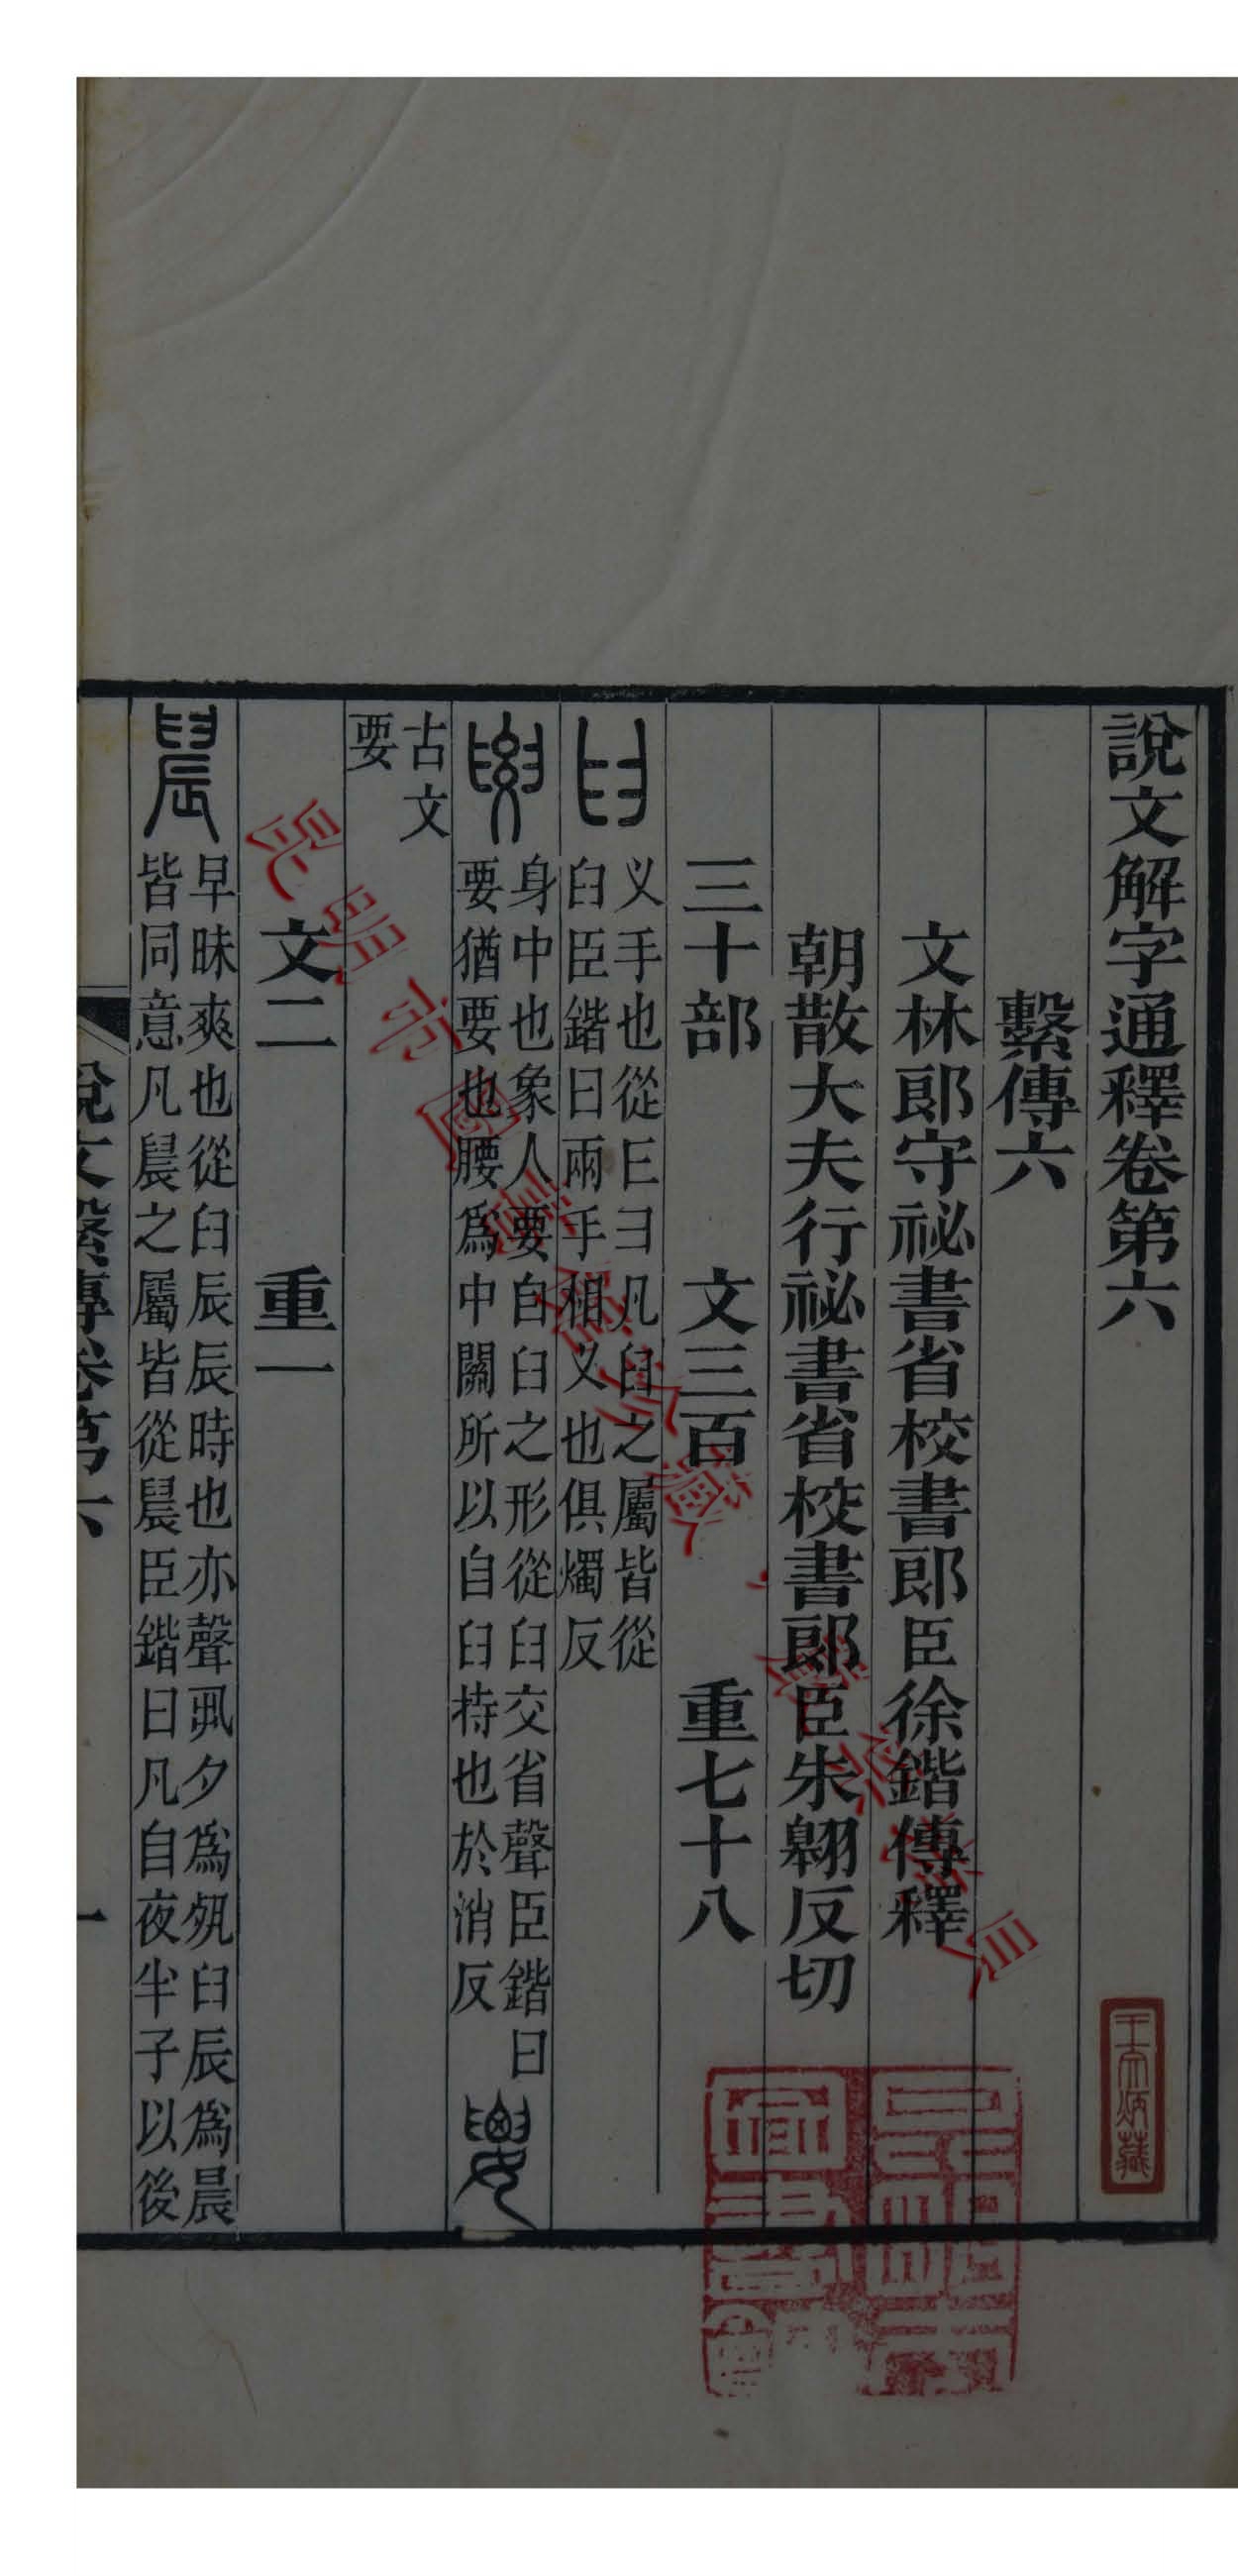 說文解字通釋卷第六
繫傳六
文林郎守祕書省校書郎臣徐鍇傳釋
朝散大夫行祕書省校書郎臣朱翱反切
三十部 文三百 重七十八
𦥑 义手也從𦥑彐凡𦥑之屬皆從
𦥑臣鍇曰兩手相义也俱燭反
身中也象人要自𦥑之形從𦥑交省聲臣鍇曰
要猶要也腰爲中關所以自𦥑持也於消反
古文
要
文二 重一
晨 早昧爽也從𦥑辰辰時也亦聲丮夕爲𡖊𦥑辰爲晨
皆同意凡晨之屬皆從晨臣鍇曰凡自夜半子以後
說文繫傳卷第六
一
王宗炳藏
昆明市國書館珍藏